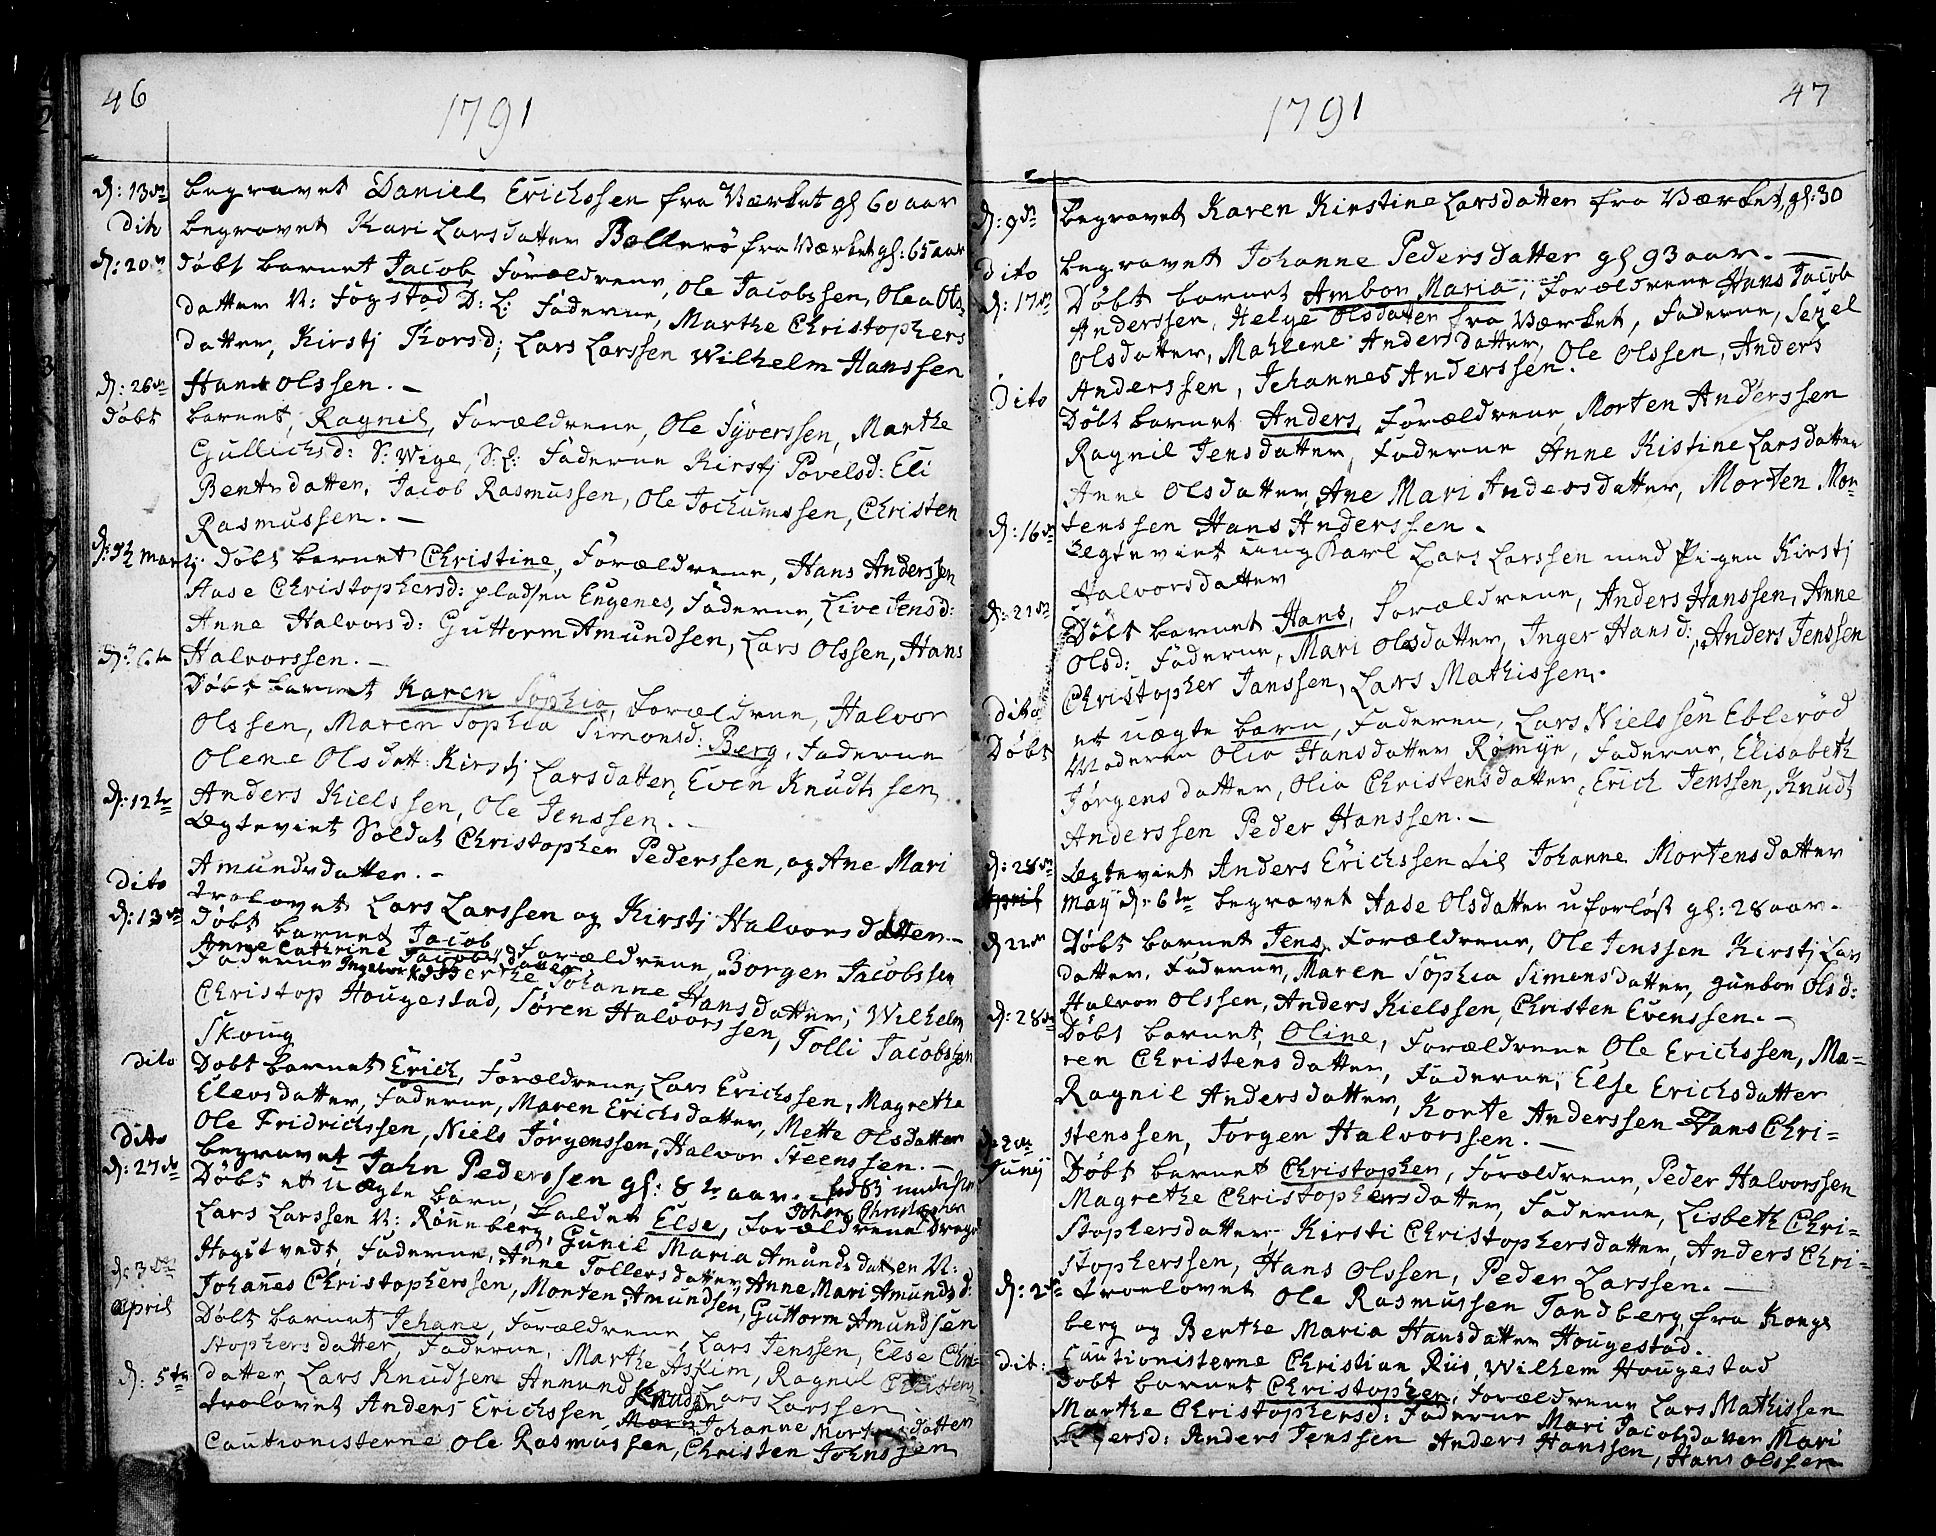 46
1791
d: 13de begravet Daniel Erichssen fra Værket gl 60 aar
dito begravet Kari Larsdatter Bællerø fra Værket gl: 65 aar
d: 20de Døbt barnet Jacob, Forældrene, Ole Jacobssen, Olea Ols
datter N: Fogstad D: L: Faderne, Marthe Christophers
datter, Kirstj Korsd; Lars Larssen Wilhelm Hanssen
Hans olssen. -
d: 26de Døbt barnet, Ragnil, Forældrene, Ole Syverssen, Marthe
Gullichsd: S: Wige, S: L: Faderne Kirstj Povelsd: Eli
Bentsdatter, Jacob Rasmussen, Ole Jochumssen, Christen
Rasmussen. -
Martij Døbt barnet Christine, Forældrene, Hans Anderssen
Aase Christophersd: pladsen Engenes, Faderne, Live Jensd:
Anne Halvorsd: Guttorm Amundsen, Lars Olssen, Hans
Halvorssen. -
d: 6te Døbt barnet Karen Sophia, Forældrene, Halvor
Olssen, Maren Sophia Simonsd: Berg, Faderne
Olene Olsdatt: Kirstj Larsdatter, Even Knudtssen
Anders Kielssen, Ole Jenssen. -
d: 12te Ægteviet Soldat Christopher Pederssen, og Ane Mari
Amundsdatter. -
dito trolovet Lars Larssen og Kirstj Halvorsdatter. -
d: 13de Døbt barnet Jacob, Forældrene, Borger Jacobssen
Anne Cathrine Jacobsdatter,
Faderne Ingebor Johanne Hansdatter, Wilhelm
Christop Hougestad, Søren Halvorssen, Tolli Jacobssen
Skoug
dito Døbt barnet Erich, Forældrene, Lars Erichssen, Magrethe
Elevsdatter, Faderne, Maren Erichsdatter, Mette Olsdatter
Ole Fridrichssen, Niels Jørgenssen, Halvor Steenssen. -
dito begravet Jahn Pederssen gl: 8 aar.
d: 27de Døbt et uægte barn, kaldet Else, Forældrene
Johan Christopher
Lars Larssen N: Rønneberg, Gunil Maria Amundsdatter N:
Hogstvedt, Faderne, Anne Tollersdatter, Anne Mari Amundsd:
Johañes Christopherssen, Morten Amundsen, Guttorm Amundsen
d: 3de april Døbt barnet Jehane, Forældrene, Lars Jenssen, Else Chri-
stophersdatter, Faderne, Marthe Askim, Ragnil Christens
datter, Lars Knudsen Amund Knudsen Lars Larssen
d: 5te trolovet Anders Erichssen Johanne Mortensdatter
Cautionisterne Ole Rasmussen, Christen Johnssen
47
1791
d: 9de Begravet Karen Kirstine Larsdatter fra Værket, gl: 30
dito begravet Johanne Pedersdatter gl 93 aar. -
d: 17de Døbt barnet Ambor Maria, Forældrene Hans Jacob
Anderssen, Helge Olsdatter fra Værket, Faderne, Sezel
Olsdatter, Mahlene Andersdatter, Ole Olssen, Anders
Anderssen, Jehannes Anderssen.
Dito Døbt barnet Anders, Forældrene, Morten Anderssen
Ragnil Jensdatter, Faderne Anne Kistine Larsdatter
Anne Olsdatter, Ane Mari Andersdatter, Morten Mor-
tenssen Hans Anderssen.
d: 16de Ægteviet ung Karl Lars Larssen med Pigen Kirstj
Halvorsdatter
d: 21de Døbt barnet Hans, Forældrene, Anders Hanssen, Anne
Olsd: Faderne, Mari Olsdatter, Inger Hansd:, Anders Jenssen
Christopher Janssen, Lars Mathissen.
dito Døbt et uægte barn, Faderen, Lars Nielssen Eblerød
Moderen Olia Hansdatter Rømye, Faderne, Elisabeth
Jørgensdatter, Olia Christensdatter, Erich Jenssen, Knudt
Anderssen Peder Hanssen. -
d: 28de Ægteviet Anders Erichssen til Johanne Mortensdatter
April May d: 6te begravet Aase Olsdatter uforløst gl: 28 aar.
d 22de Døbt barnet Jens, Forældrene, Ole Jenssen Kirstj Lars
datter, Faderne, Maren Sophia Simensdatter, gunbor Olsd:
Halvor Olssen, Anders Kielssen, Christen Evenssen. -
d: 28de Døbt barnet, Oline, Forældrene Ole Erichssen, Ma-
ren Christensdatter, Faderne, Else Erichsdatter
Ragnil Andersdatter, Korte Anderssen Hans Chri-
stenssen, Jørgen Halvorssen. -
d: 2den Junij Døbt barnet Christopher, Forældrene, Peder Halvorssen
Magrethe Christophersdatter, Faderne, Lisbeth Chri-
stophersdatter Kirsti Christophersdatter, Anders Chri-
stopherssen, Hans Olssen, Peder Larssen. -
d: 2de troelovet Ole Rasmussen Tandberg, fra Kongs
berg og Berthe Maria Hansdatter Hougestad.
Cautionisterne Christian Riis, Wilhem Hougestad
dit: Døbt barnet Christopher, Forældrene Lars Mathissen
Marthe Christophersd: Faderne Mari Jacobsdatter Mari
Anders Jenssen Anders Hanssen, Hans olssen